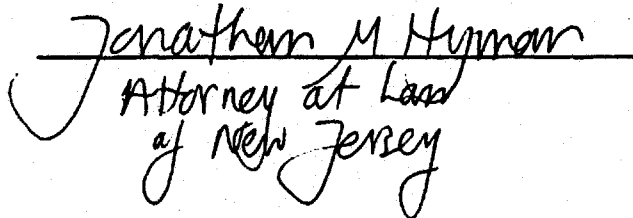 Jonathan M Hyman
Attorney at Law
of New Jersey